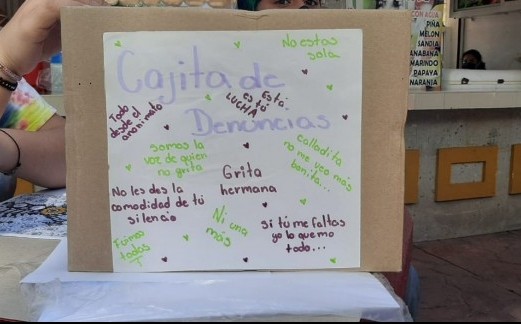 CON AGUA
PIÑA
MELON
SANDIA
ANABANA
MARINDO
PAPAYA
NARANJA
No estas
sola
Cajita de
Denuncias
Todo
desde el
anonimato
Está
es tú
LUCHA
somos la
voz de quien
no grita
calladita
no me veo más
bonita...
Grita
hermana
No les des la
comodidad de tú
silencio
Ni una
más
si tú me faltas
yo lo quemo
todo...
Fuimos
todas